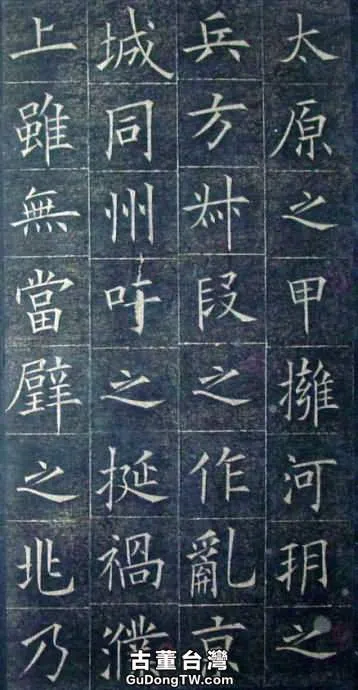 太原之甲擁河朔之
兵方叔段之作亂京
城同州吁之挺禍濮
上雖無當璧之兆乃
古董台灣
GuDongTW.com